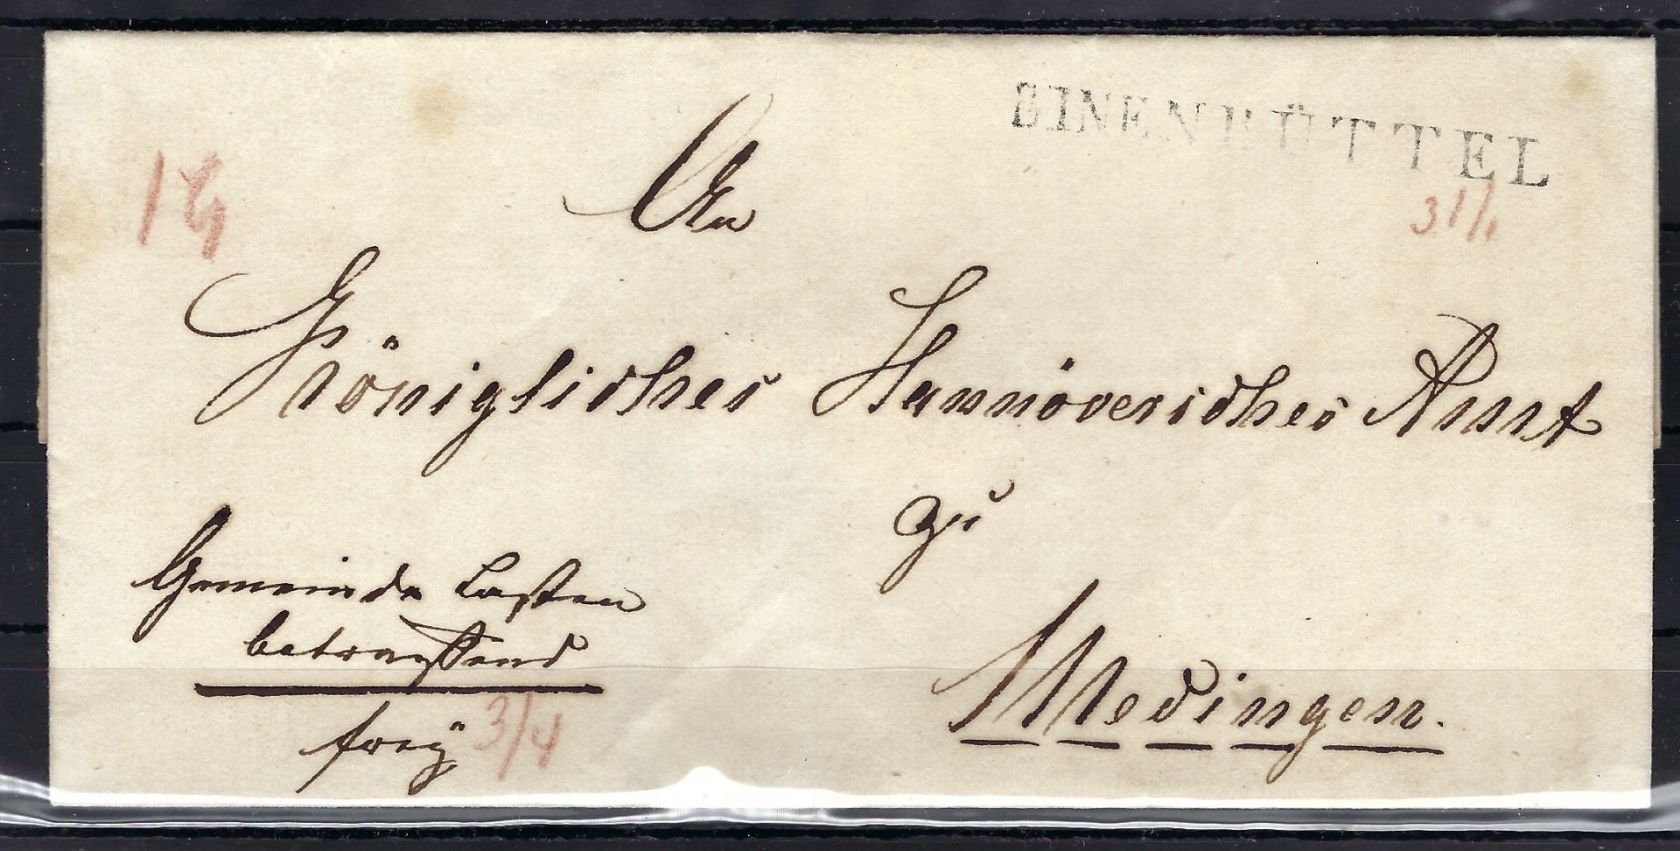 BIENENBÜTTEL
31/1
An
Königliches Hannöversches Amt
zu
Medingen.
Gemeinde Lasten
betreffend
frey 3/4